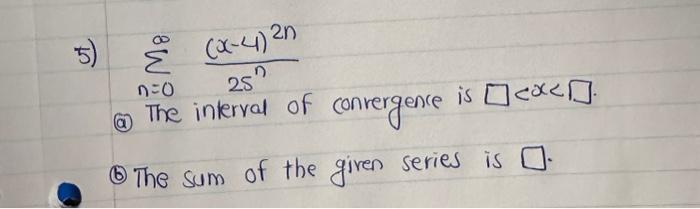 5) ∞ Σ n=0 (x-4)^2n / 25^n
ⓐ The interval of convergence is □<x<□.
ⓑ The sum of the given series is □.